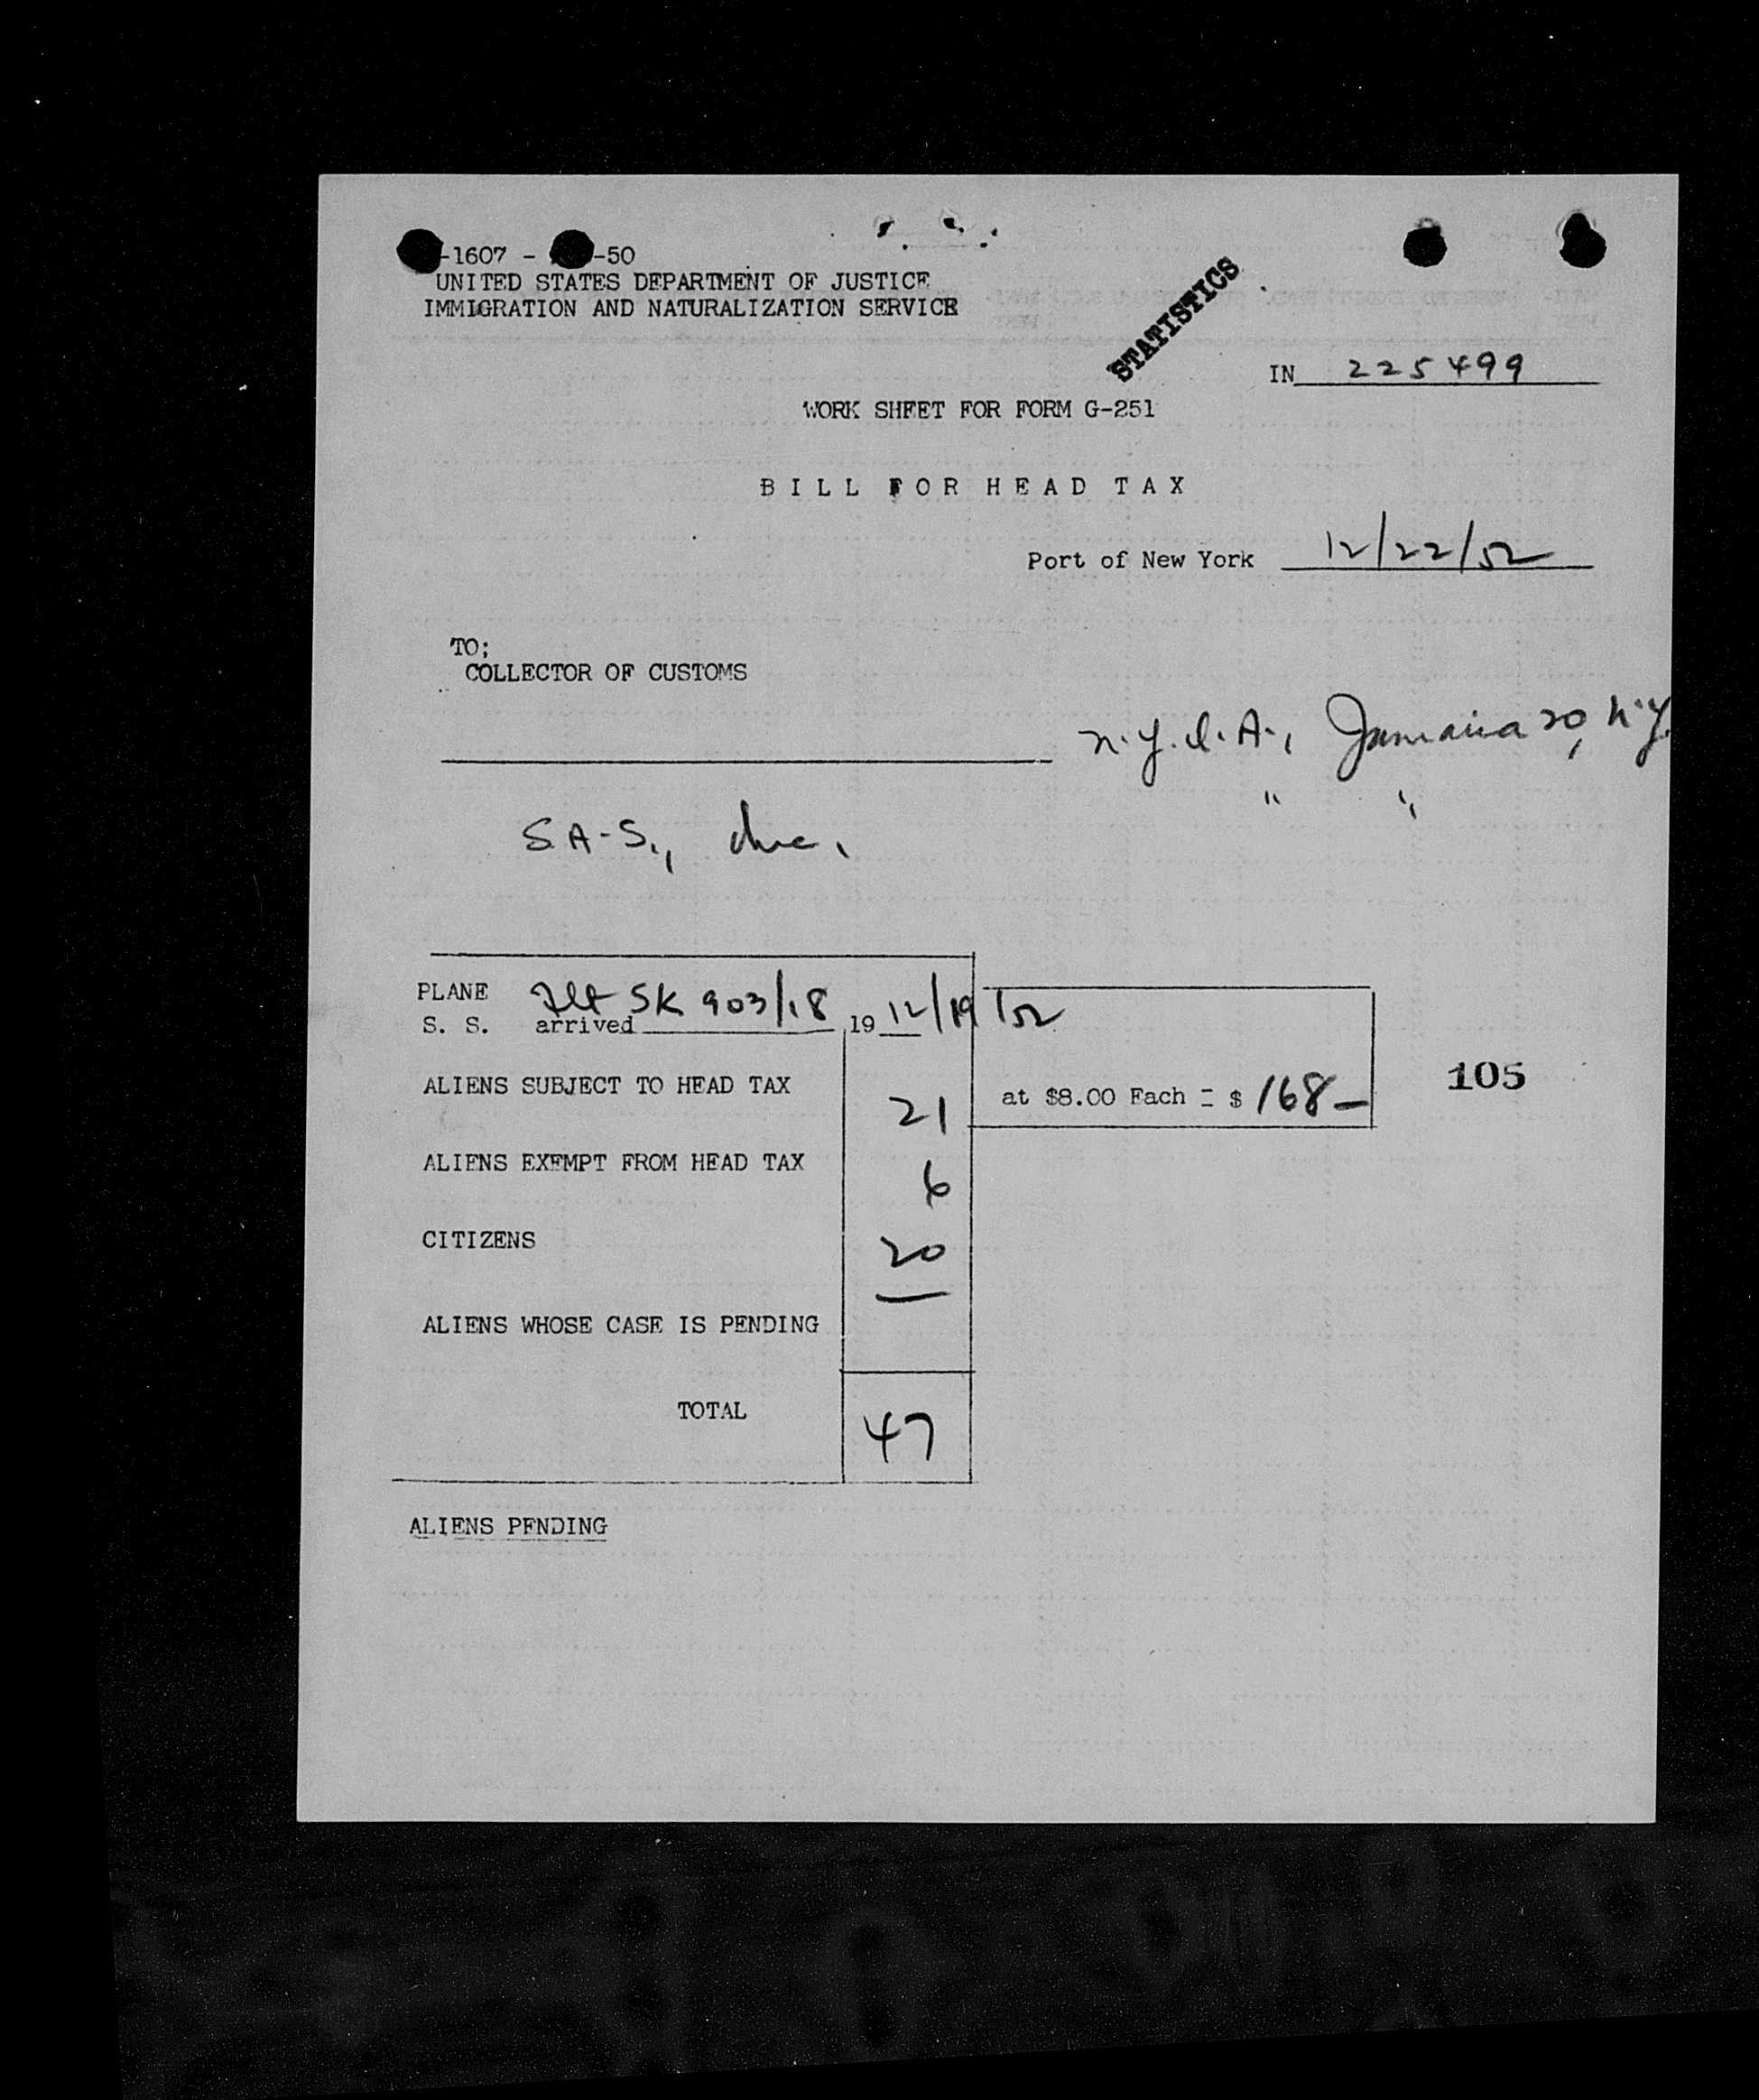 -1607 - -50
UNITED STATES DEPARTMENT OF JUSTICE
IMMIGRATION AND NATURALIZATION SERVICE
STATISTICS
IN 225499
WORK SHEET FOR FORM G-251
BILL FOR HEAD TAX
Port of New York 12/22/52
TO;
COLLECTOR OF CUSTOMS
N.Y.I.A., Jamaica 20, N.Y.
" "
S.A.S., Inc.
PLANE Flt SK 903/18 12/19/52
S. S. arrived 19
ALIENS SUBJECT TO HEAD TAX 21 at $8.00 Each = $ 168- 105
ALIENS EXEMPT FROM HEAD TAX 6
CITIZENS 20
ALIENS WHOSE CASE IS PENDING
TOTAL 47
ALIENS PENDING